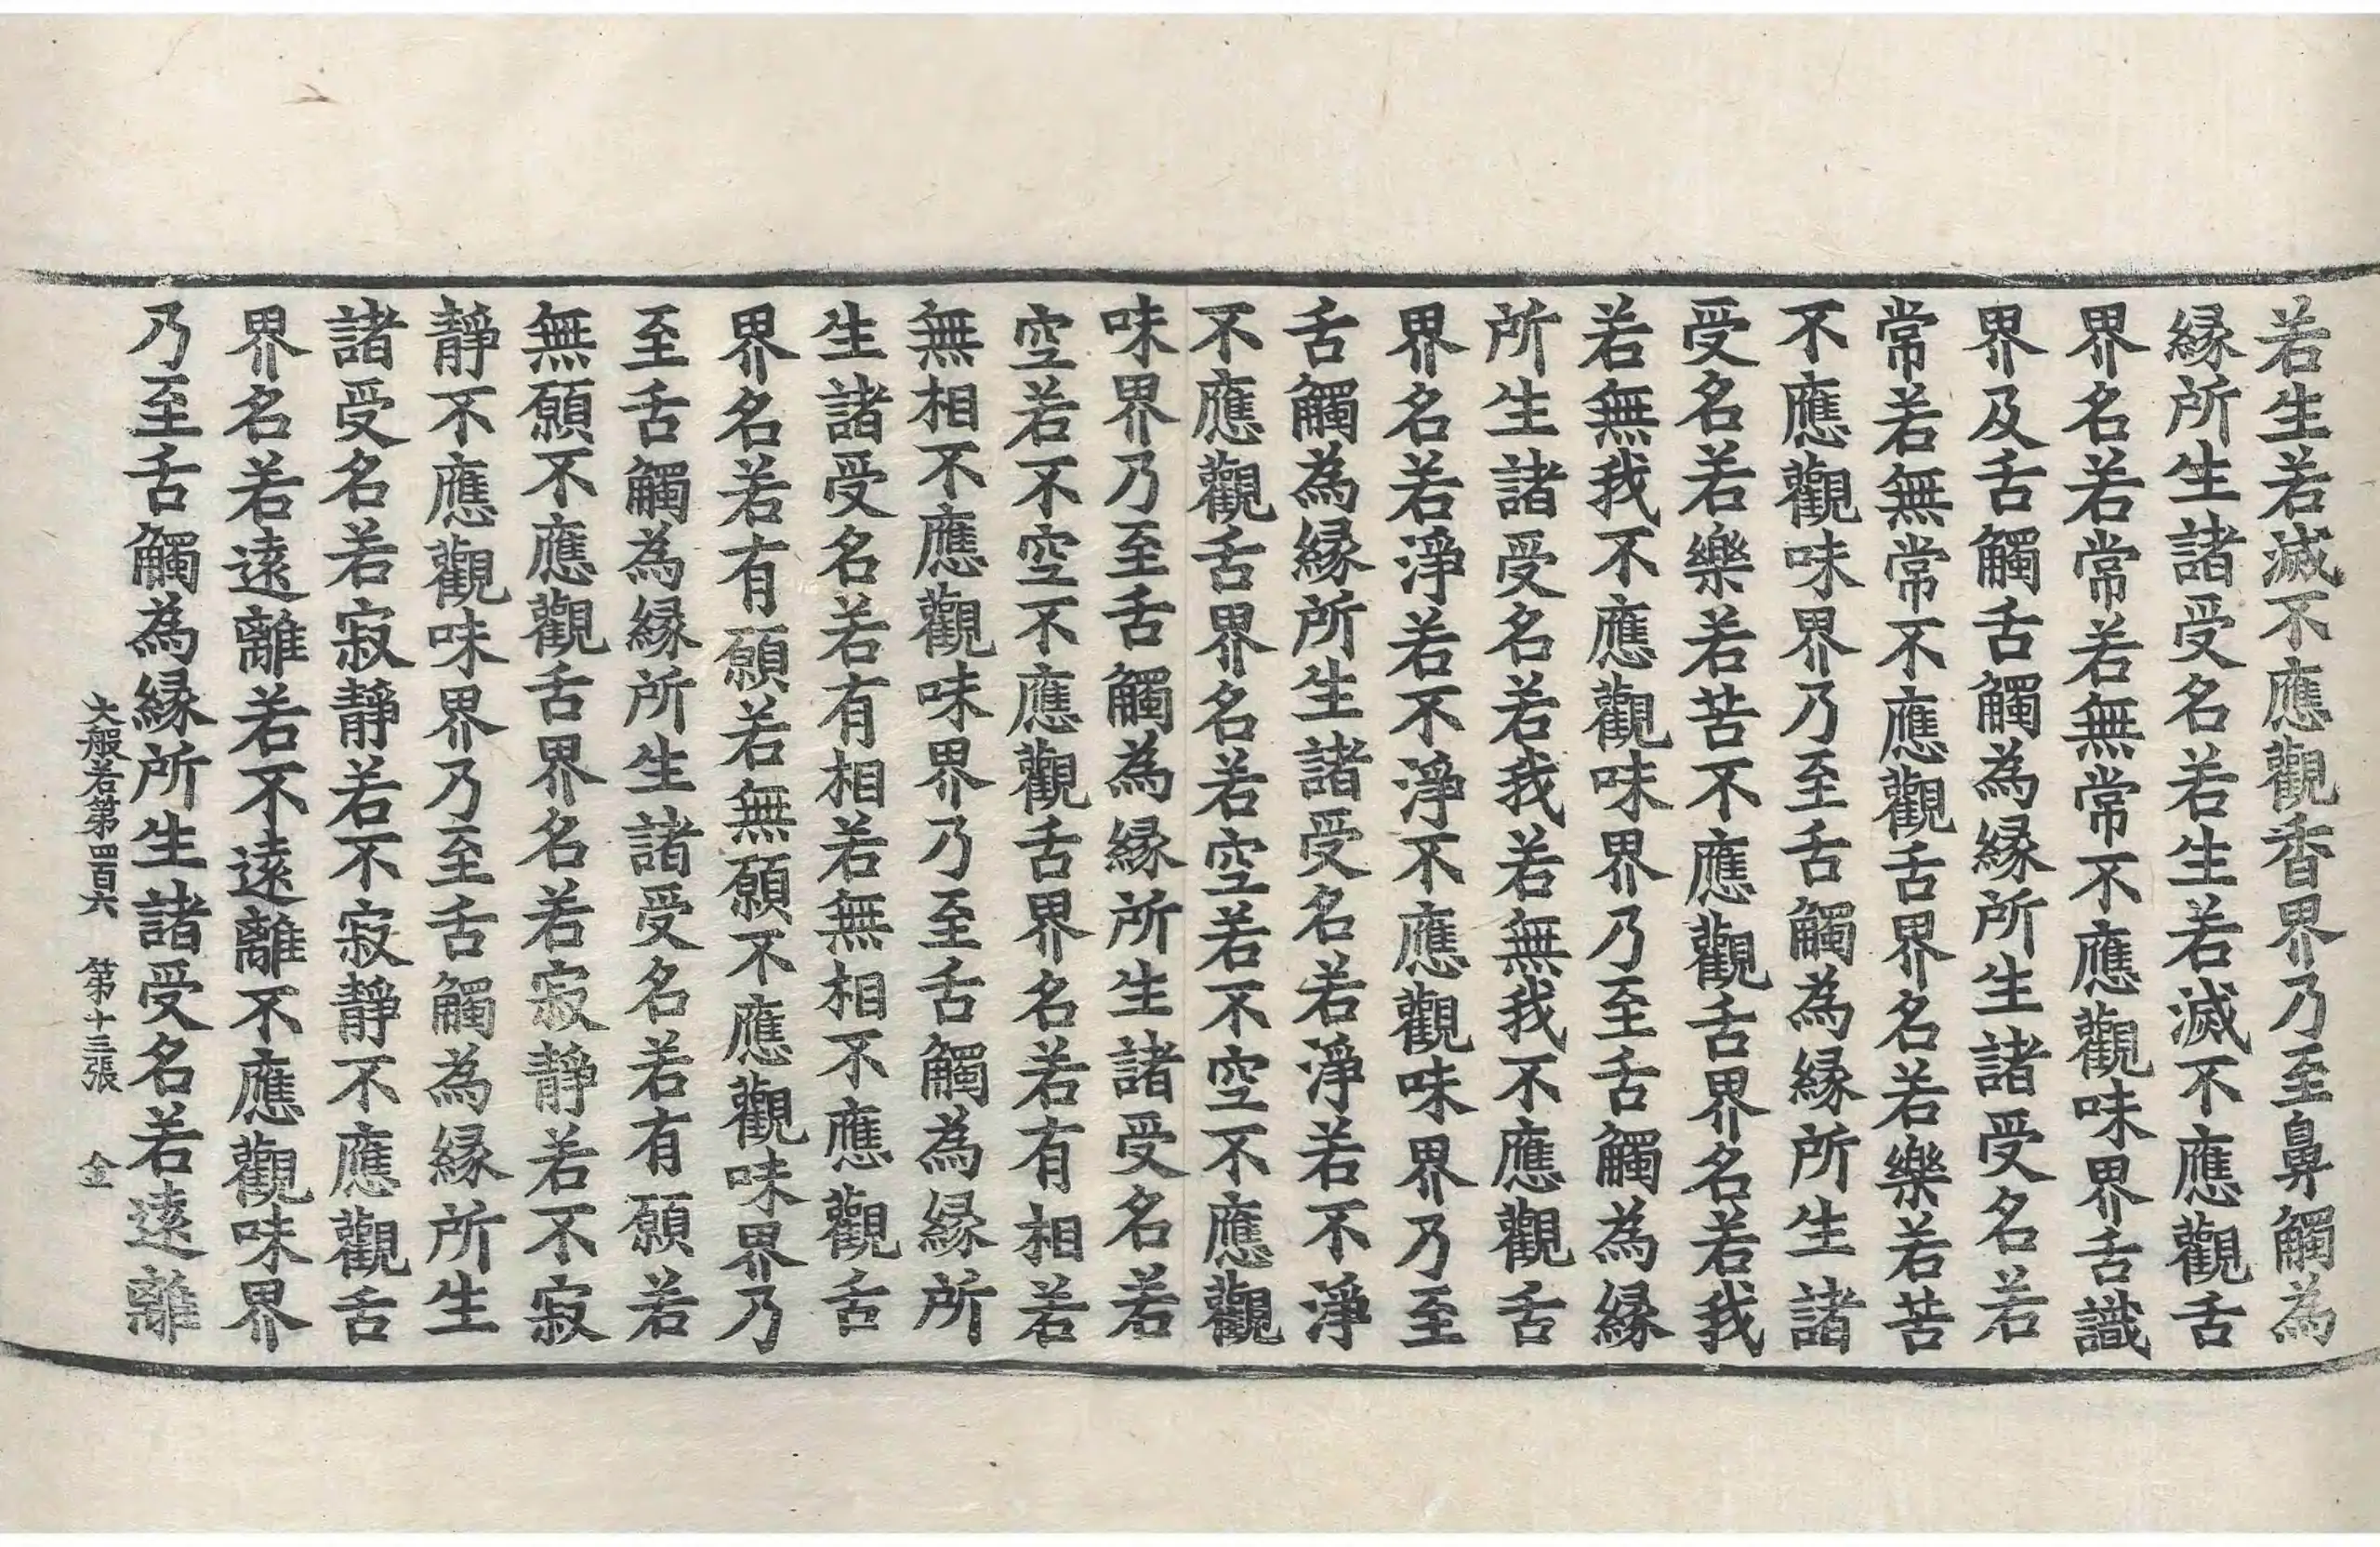 若生若滅不應觀香界乃至鼻觸為
縁所生諸受名若生若滅不應觀舌
界名若常若無常不應觀味界舌識
界及舌觸舌觸為縁所生諸受名若
常若無常不應觀舌界名若樂若苦
不應觀味界乃至舌觸為縁所生諸
受名若樂若苦不應觀舌界名若我
若無我不應觀味界乃至舌觸為縁
所生諸受名若我若無我不應觀舌
界名若淨若不淨不應觀味界乃至
舌觸為縁所生諸受名若淨若不淨
不應觀舌界名若空若不空不應觀
味界乃至舌觸為縁所生諸受名若
空若不空不應觀舌界名若有相若
無相不應觀味界乃至舌觸為縁所
生諸受名若有相若無相不應觀舌
界名若有願若無願不應觀味界乃
至舌觸為縁所生諸受名若有願若
無願不應觀舌界名若寂靜若不寂
靜不應觀味界乃至舌觸為縁所生
諸受名若寂靜若不寂靜不應觀舌
界名若遠離若不遠離不應觀味界
乃至舌觸為縁所生諸受名若遠離
大般若第四百六 第十三張 金